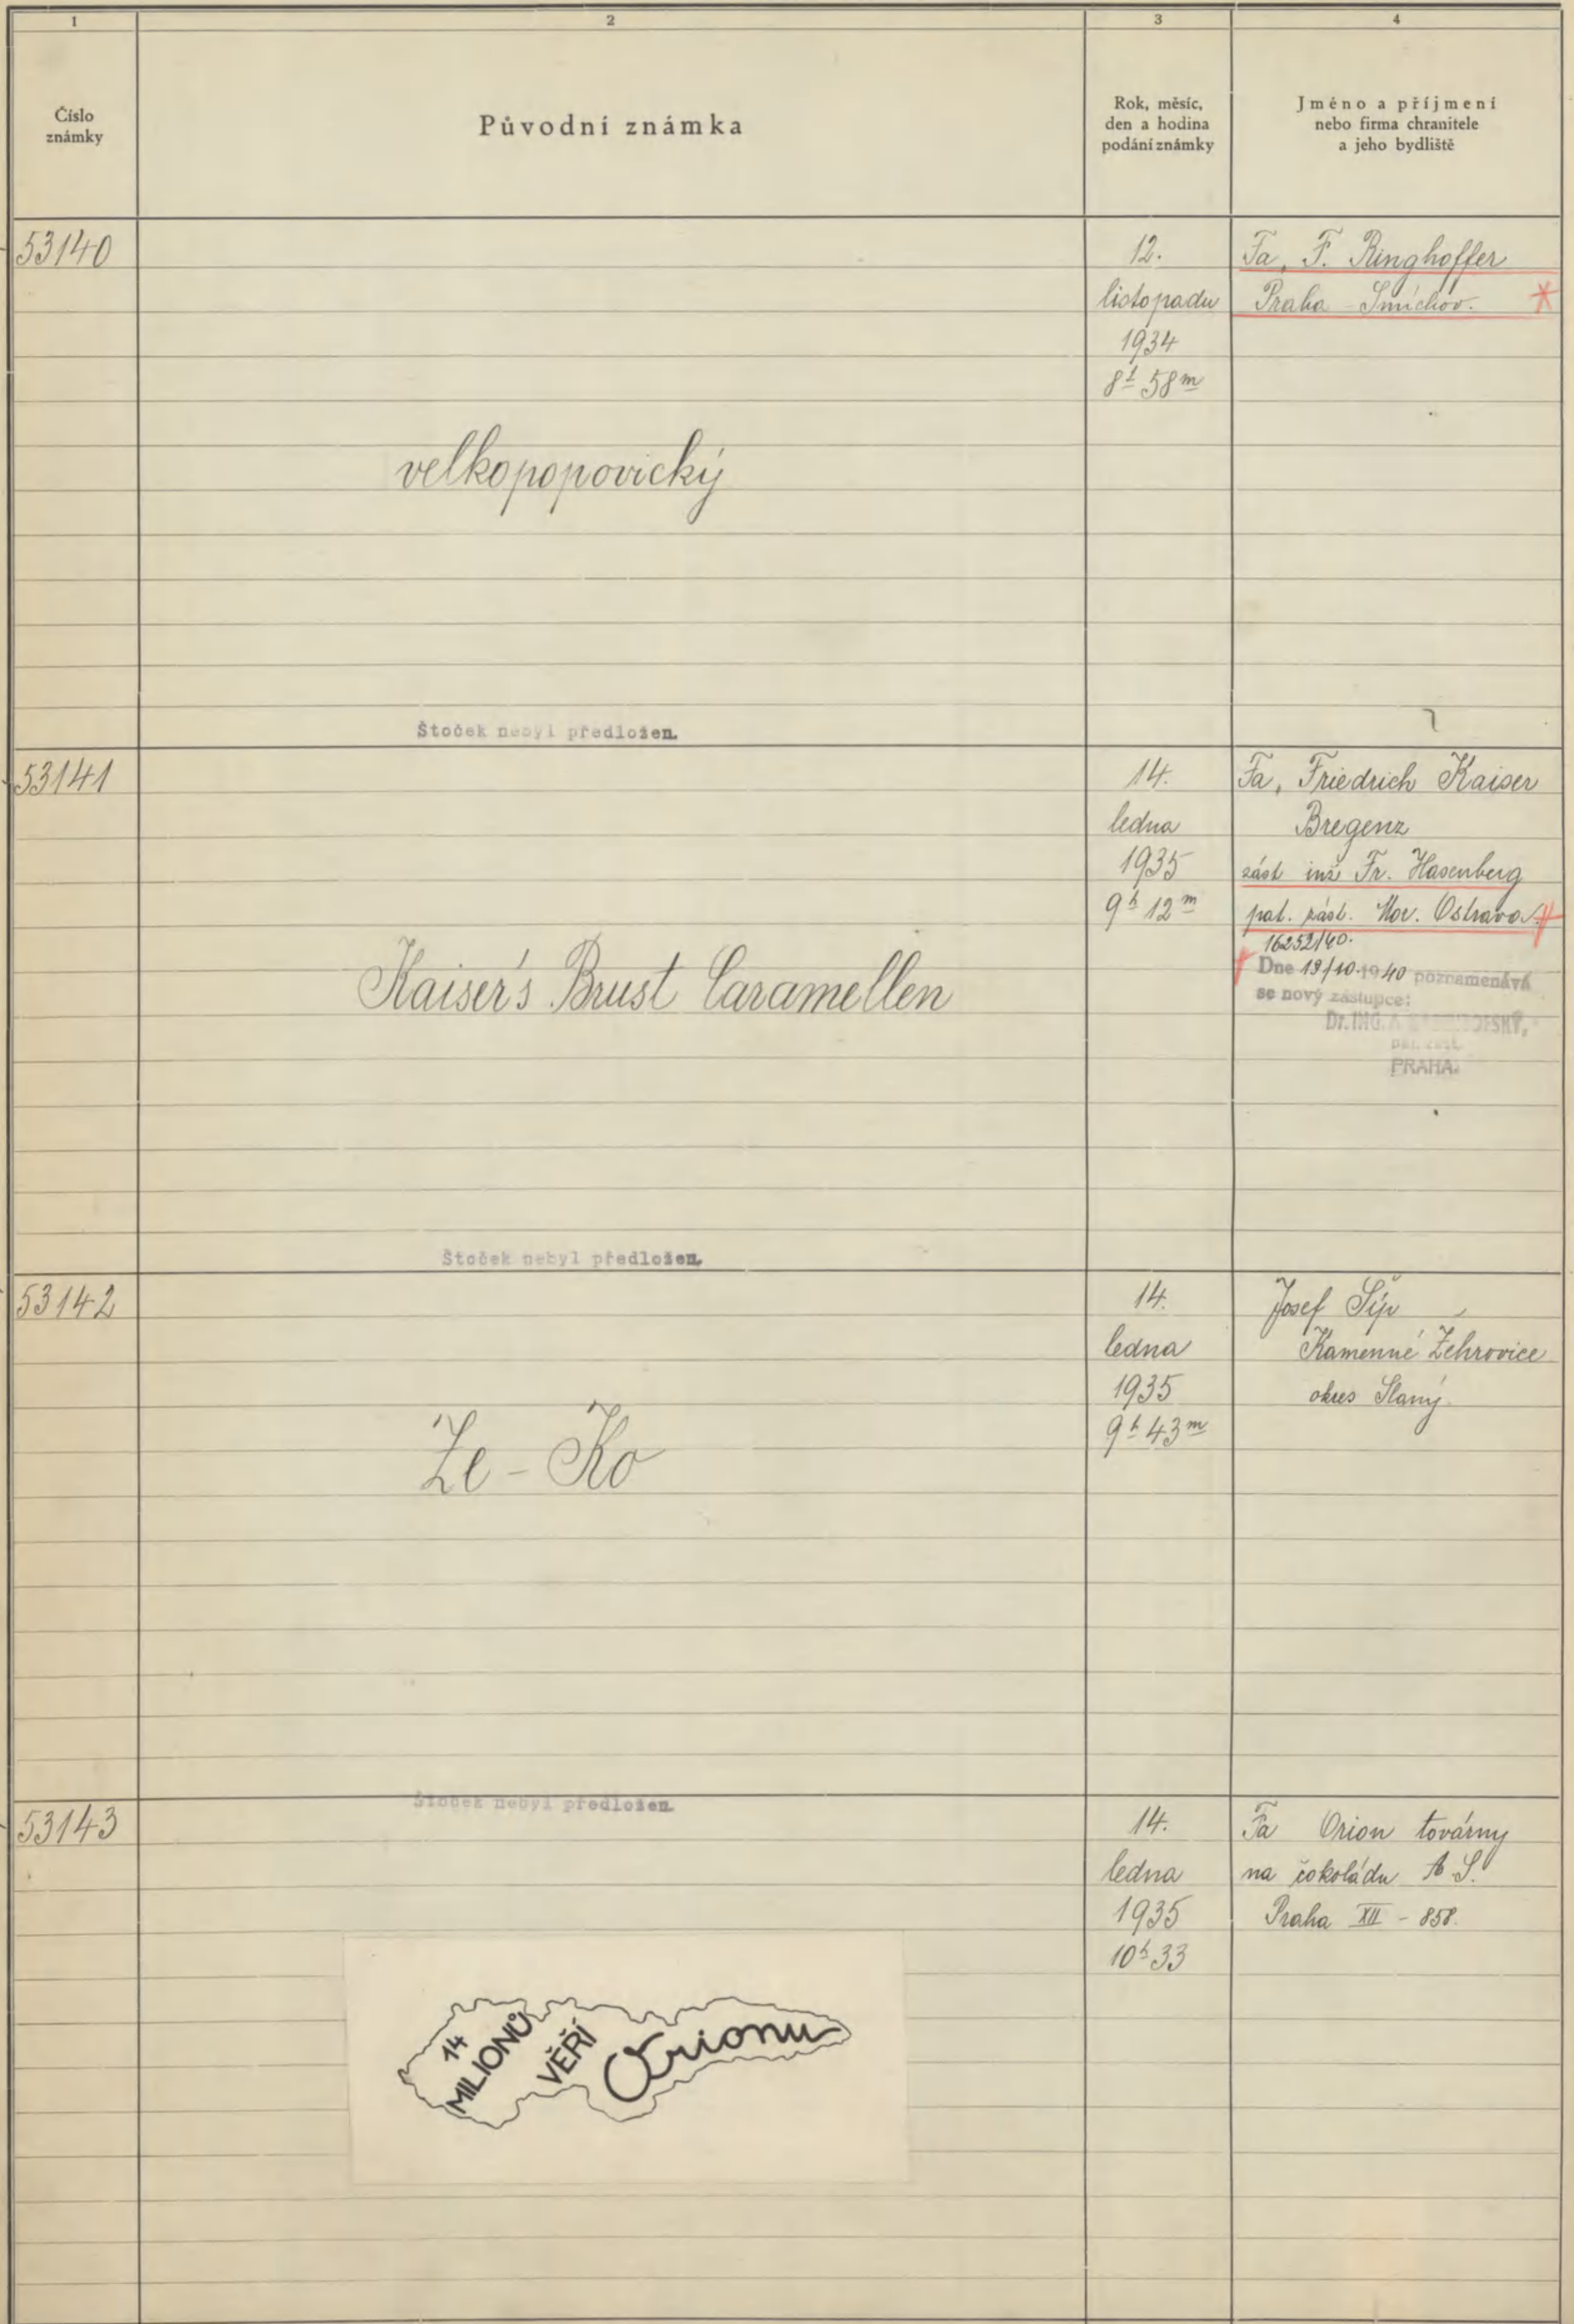 1
2
3
4
Číslo
známky
Původní známka
Rok, měsíc,
den a hodina
podání známky
Jméno a příjmení
nebo firma chranitele
a jeho bydliště
53140
velkopopovický
Štoček nebyl předložen.
12.
listopadu
1934
8h 58m
Fa, F. Ringhoffer
Praha - Smíchov.
53141
Kaiser's Brust Caramellen
Štoček nebyl předložen.
14.
ledna
1935
9h 12m
Fa, Friedrich Kaiser
Bregenz
zást inž Fr. Hasenberg
pat. zást. Mor. Ostrava
16252/40.
Dne 19/10.1940 poznamenává
se nový zástupce:
Dr. ING. A
pat. zást.
PRAHA.
53142
Že - Ko
Štoček nebyl předložen.
14.
ledna
1935
9h 43m
Josef Šíp
Kamenné Žehrovice
okres Slaný.
53143
14
MILIONŮ
VĚŘÍ
Orionu
14.
ledna
1935
10h 33
Fa Orion továrny
na čokoládu A S.
Praha XII - 858.